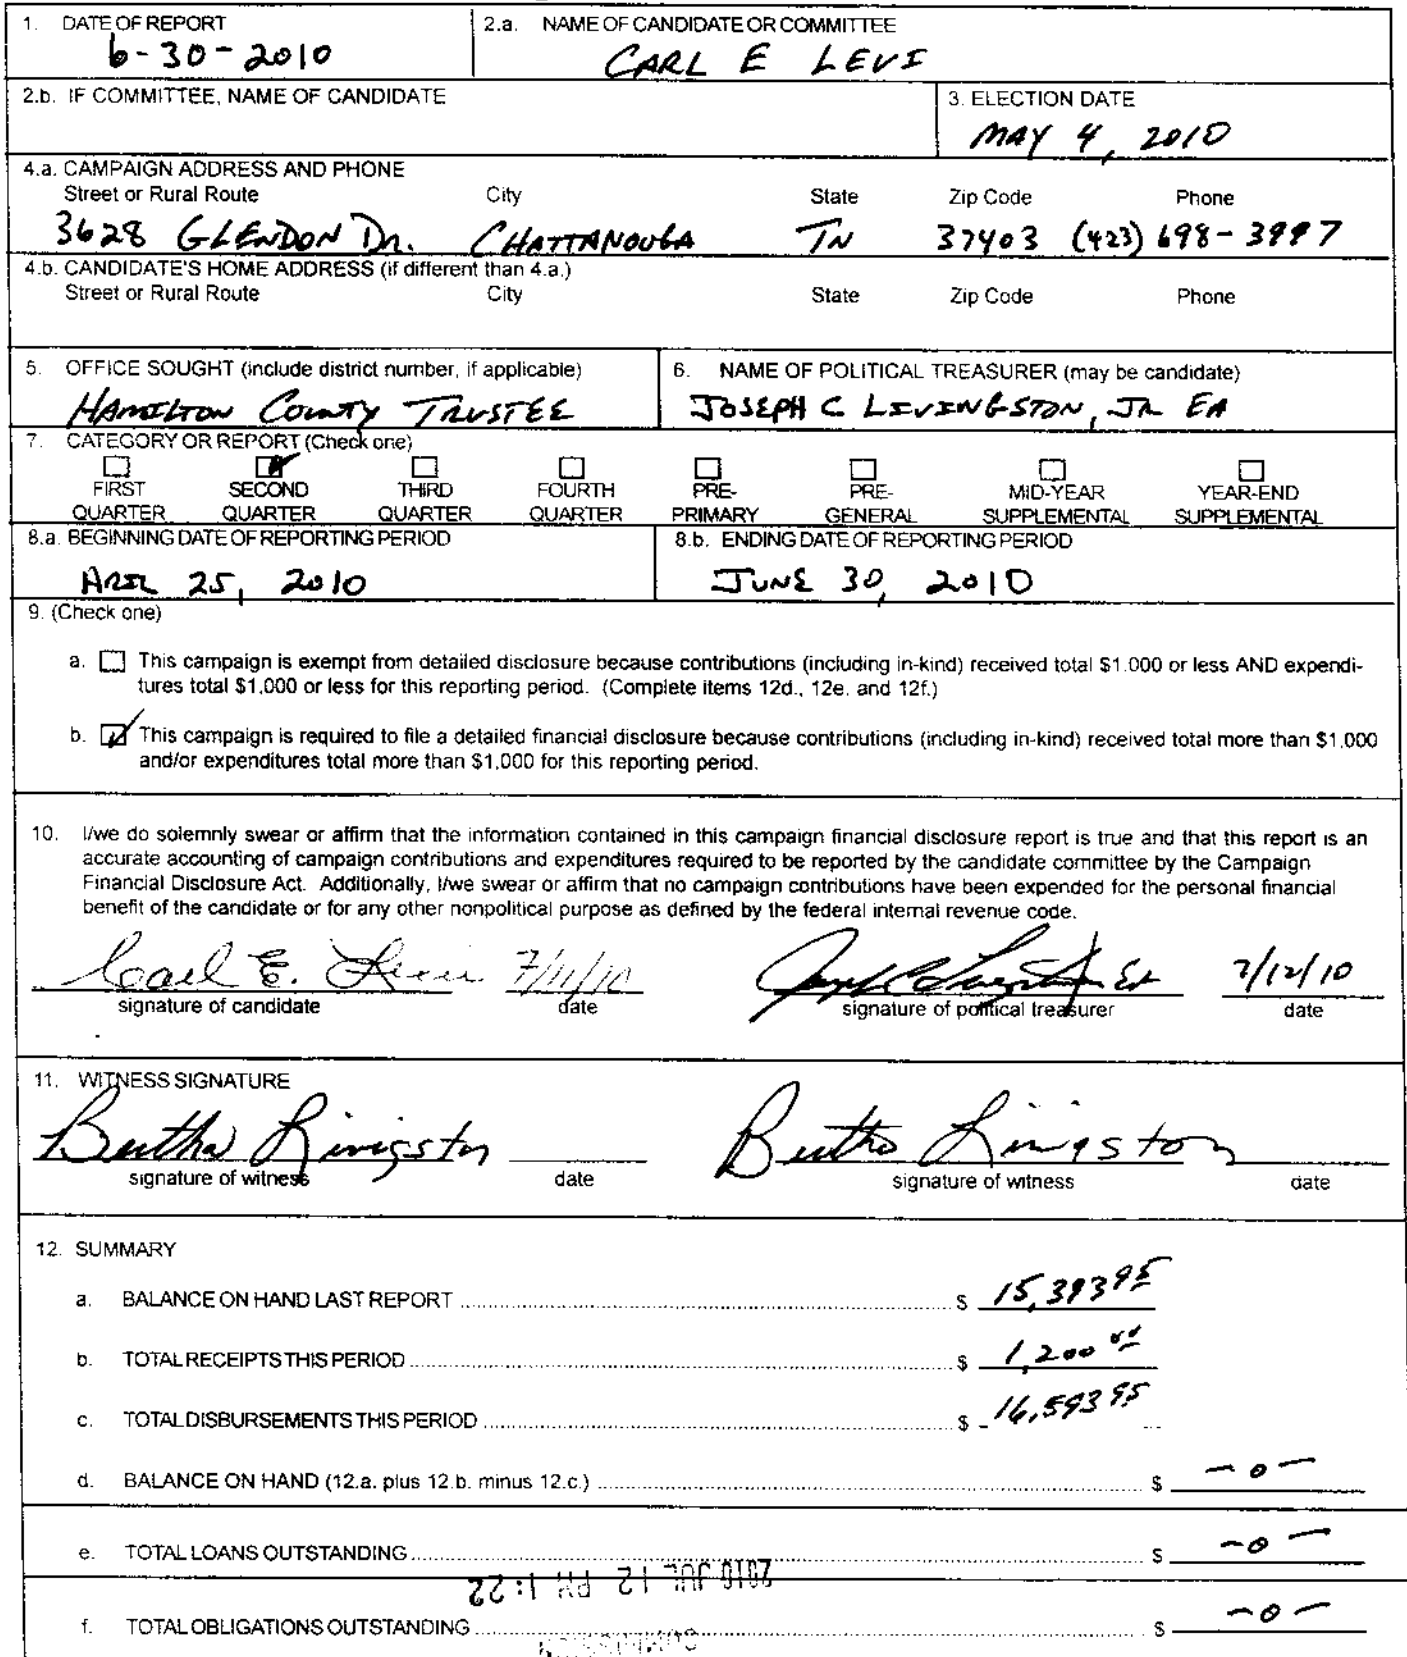 1. DATE OF REPORT 2.a. NAME OF CANDIDATE OR COMMITTEE
6-30-2010 CARL E LEVI
2.b. IF COMMITTEE, NAME OF CANDIDATE 3. ELECTION DATE
MAY 4, 2010
4.a. CAMPAIGN ADDRESS AND PHONE
Street or Rural Route City State Zip Code Phone
3628 GLENDON DR. CHATTANOUGA TN 37403 (423) 698-3997
4.b. CANDIDATE'S HOME ADDRESS (if different than 4.a.)
Street or Rural Route City State Zip Code Phone
5. OFFICE SOUGHT (include district number, if applicable) 6. NAME OF POLITICAL TREASURER (may be candidate)
HAMILTON COUNTY TRUSTEE JOSEPH C LIVINGSTON, JR EA
7. CATEGORY OR REPORT (Check one)
FIRST SECOND THIRD FOURTH PRE- PRE- MID-YEAR YEAR-END
QUARTER QUARTER QUARTER QUARTER PRIMARY GENERAL SUPPLEMENTAL SUPPLEMENTAL
8.a. BEGINNING DATE OF REPORTING PERIOD 8.b. ENDING DATE OF REPORTING PERIOD
25, 2010 JUNE 30, 2010
9. (Check one)
a. This campaign is exempt from detailed disclosure because contributions (including in-kind) received total $1.000 or less AND expendi-
tures total $1,000 or less for this reporting period. (Complete items 12d., 12e. and 12f.)
b. This campaign is required to file a detailed financial disclosure because contributions (including in-kind) received total more than $1,000
and/or expenditures total more than $1,000 for this reporting period.
10. I/we do solemnly swear or affirm that the information contained in this campaign financial disclosure report is true and that this report is an
accurate accounting of campaign contributions and expenditures required to be reported by the candidate committee by the Campaign
Financial Disclosure Act. Additionally, I/we swear or affirm that no campaign contributions have been expended for the personal financial
benefit of the candidate or for any other nonpolitical purpose as defined by the federal internal revenue code.
Carl E. Levi 7/11/10 7/12/10
signature of candidate date signature of political treasurer date
11. WITNESS SIGNATURE
Bertha Livingston Bertha Livingston
signature of witness date signature of witness date
12. SUMMARY
a. BALANCE ON HAND LAST REPORT $ 15,393 95
b. TOTAL RECEIPTS THIS PERIOD $ 1,200 00
c. TOTAL DISBURSEMENTS THIS PERIOD $ 16,593 95
d. BALANCE ON HAND (12.a. plus 12.b. minus 12.c.) $ -0-
e. TOTAL LOANS OUTSTANDING $ -0-
2010 JUL 12 PM 1:22
f. TOTAL OBLIGATIONS OUTSTANDING $ -0-